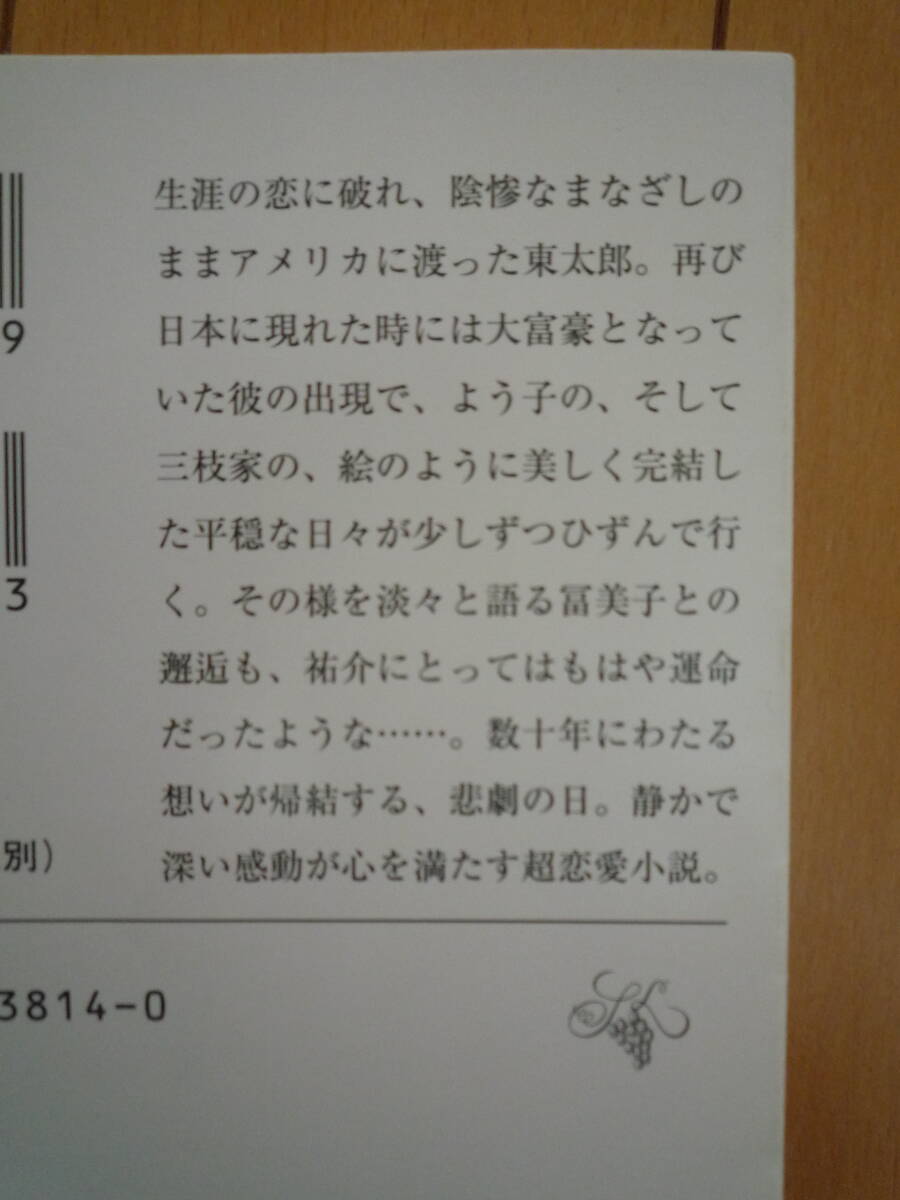 生涯の恋に破れ、陰惨なまなざしの
ままアメリカに渡った東太郎。再び
日本に現れた時には大富豪となって
いた彼の出現で、よう子の、そして
三枝家の、絵のように美しく完結し
た平穏な日々が少しずつひずんで行
く。その様を淡々と語る冨美子との
邂逅も、祐介にとってはもはや運命
だったような……。数十年にわたる
想いが帰結する、悲劇の日。静かで
深い感動が心を満たす超恋愛小説。
9
3
別)
3814-0